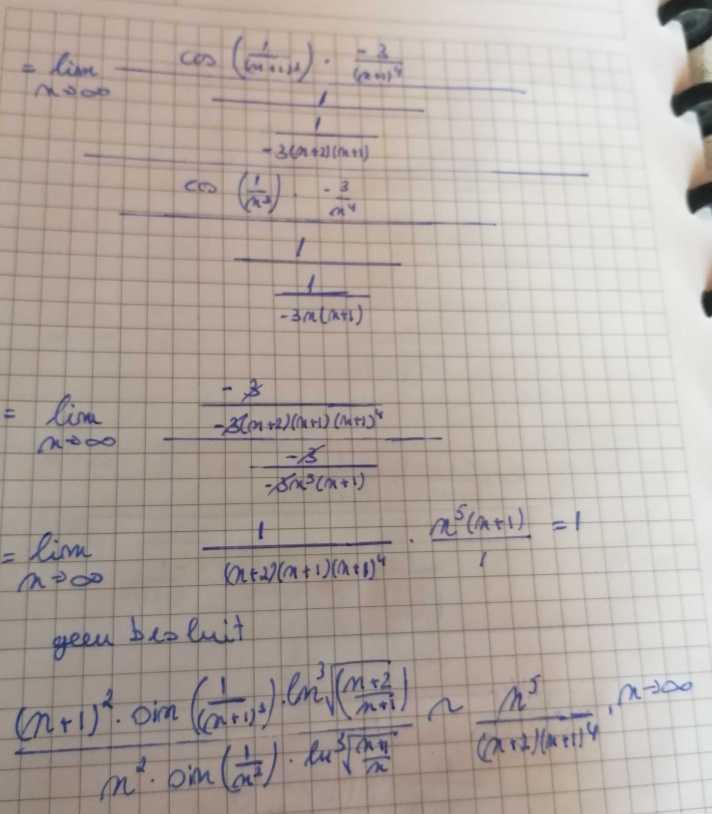 = lim n→∞ cos (1/(n+1)³) · -3/(n+1)⁴
1
1
-3(n+2)(n+1)
cos (1/n³) · -3/n⁴
1
1
-3n(n+1)
= lim n→∞ -3
-3(n+2)(n+1)(n+1)⁴
-3
-3n⁵(n+1)
= lim n→∞ 1/((n+2)(n+1)(n+1)⁴) · n⁵(n+1)/1 = 1
geen besluit
(n+1)² · sin (1/(n+1)³) · ln ³√((n+2)/(n+1)) ~ n⁵/((n+2)(n+1)⁴), n→∞
n² · sin (1/n³) · ln ³√((n+1)/n)